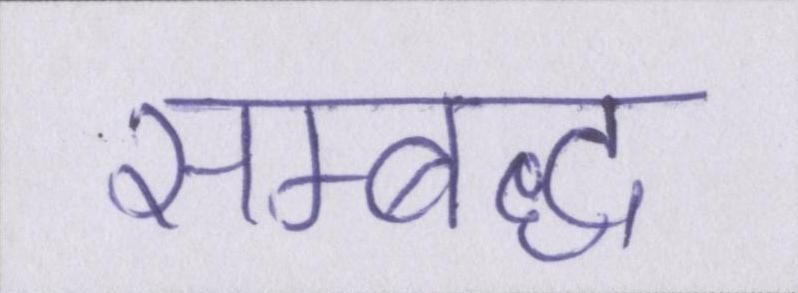 सम्बद्ध